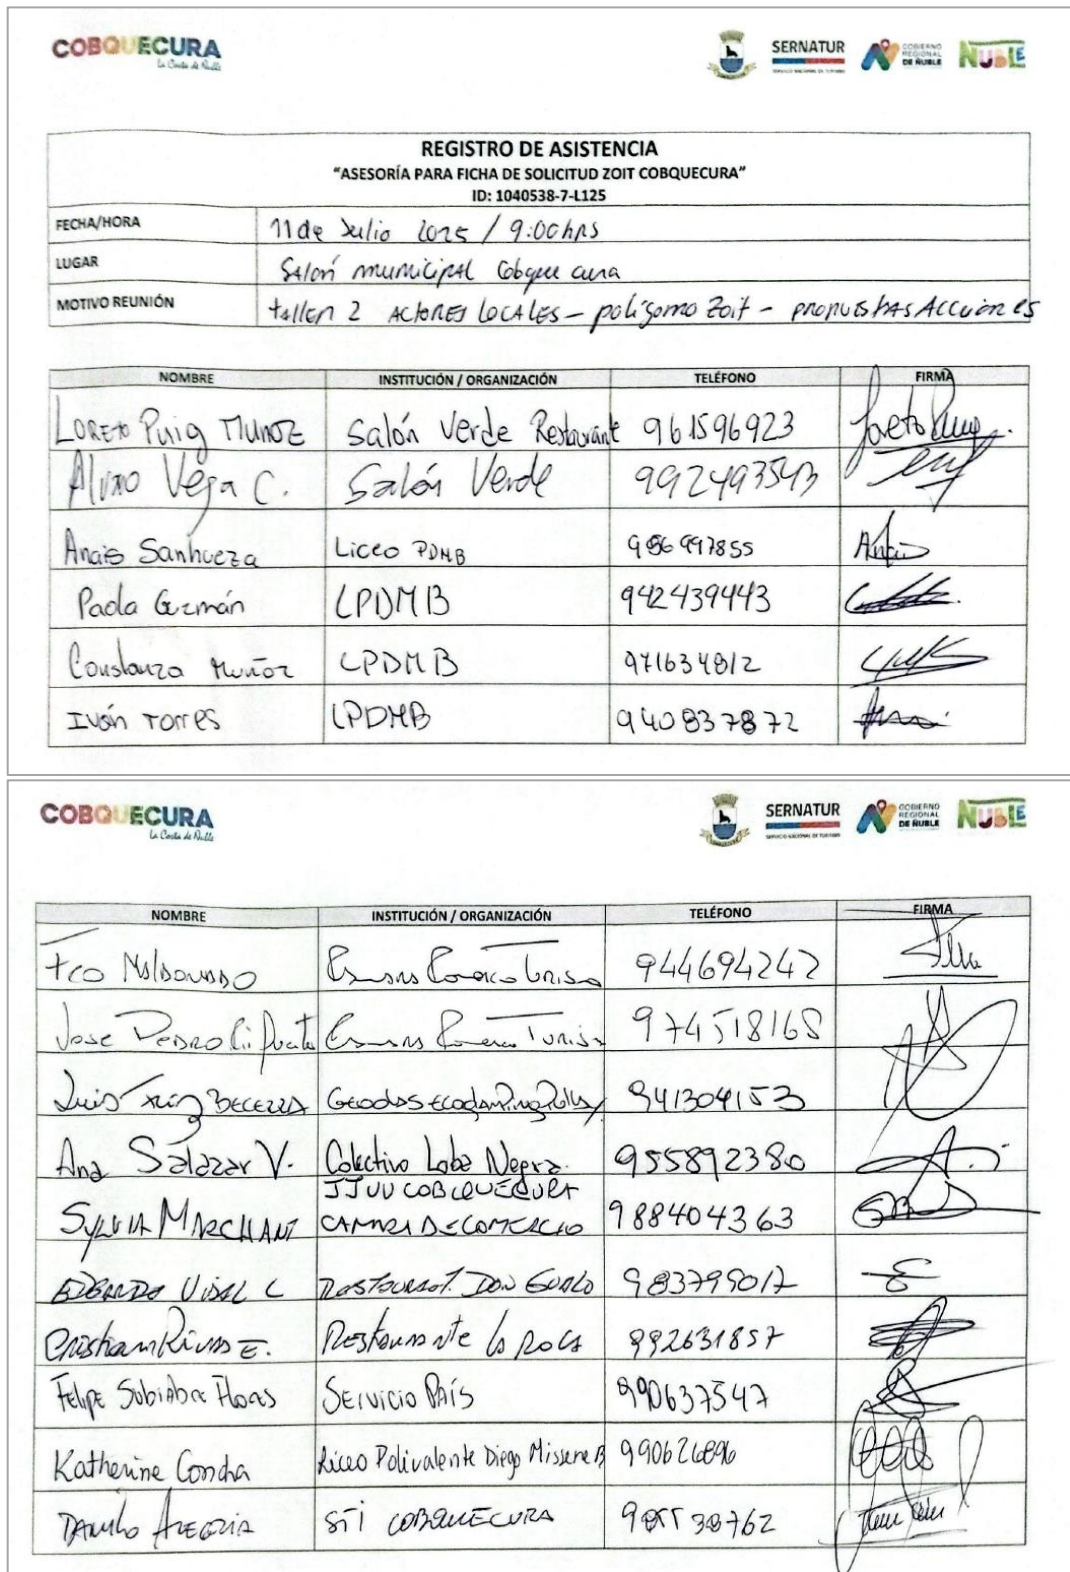 COBQUECURA
La Costa de Ñuble
SERNATUR
SERVICIO NACIONAL DE TURISMO
GOBIERNO REGIONAL DE ÑUBLE
ÑUBLE
REGISTRO DE ASISTENCIA
"ASESORÍA PARA FICHA DE SOLICITUD ZOIT COBQUECURA"
ID: 1040538-7-L125
FECHA/HORA 11 de Julio 2025 / 9:00 hrs
LUGAR Salón municipal Cobquecura
MOTIVO REUNIÓN taller 2 ACTORES LOCALES - polígono Zoit - PROPUESTAS ACCIONES
NOMBRE INSTITUCIÓN / ORGANIZACIÓN TELÉFONO FIRMA
LORETO Puig MUÑOZ Salón Verde Restaurante 961596923
Alvaro Vega C. Salón Verde 992493543
Anais Sanhueza Liceo PDMB 956997855
Paola Guzmán LPDMB 942439443
Constanza Muñoz LPDMB 971634812
Iván Torres LPDMB 940837872
COBQUECURA
La Costa de Ñuble
SERNATUR
SERVICIO NACIONAL DE TURISMO
GOBIERNO REGIONAL DE ÑUBLE
ÑUBLE
NOMBRE INSTITUCIÓN / ORGANIZACIÓN TELÉFONO FIRMA
Fco Maldonado 944694242
Jose Pedro Cifuentes 974518168
Luis BECERRA 941304153
Ana Salazar V. Colectivo Loba Negra 955892380
SYLVIA MARCHANT JJVV COBQUECURA CAMARA DE COMERCIO 988404363
EDGARDO VIDAL C RESTAURANT. DON GUALO 983799017
Cristian Rivas E. Restaurante la Roca 992631857
Felipe Subiabre Flores SERVICIO PAÍS 990637547
Katherine Concha Liceo Polivalente Diego Missene B 990626896
DANILO ALEGRIA STI COBQUECURA